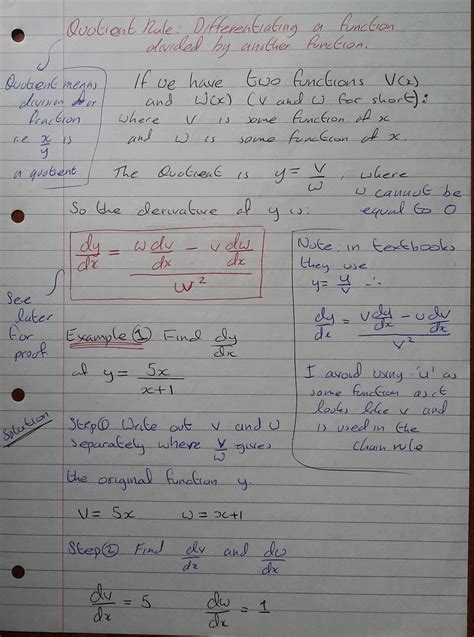 Quotient Rule: Differentiating a function
divided by another function.
Quotient means
division or
fraction
i.e x/y is
a quotient
If we have two functions V(x)
and W(x) (V and W for short):
where V is some function of x
and W is some function of x.
The Quotient is y = V/W, where
W cannot be
equal to 0
So the derivative of y is:
dy/dx = (W dv/dx − V dw/dx) / W²
See
later
for
proof
Note: in textbooks
they use
y = u/v ∴
dy/dx = (V du/dx − u dv/dx) / V²
I avoid using 'u' as
some function as it
looks like v and
is used in the
chain rule
Example ① Find dy/dx
of y = 5x/(x+1)
Solution
Step ① Write out V and W
separately where V/W gives
the original function y.
V = 5x W = x+1
Step ② Find dv/dx and dw/dx
dv/dx = 5 dw/dx = 1